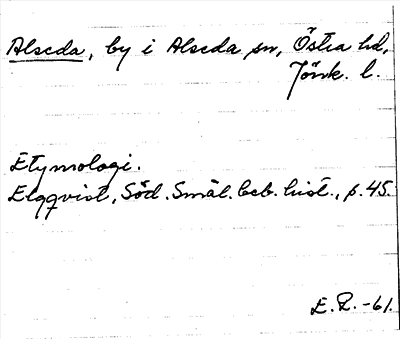 Alseda, by i Alseda sn, Östra hd,
Jönk. l.
Etymologi.
Elgqvist, Söd. Smål. beb. hist., p. 45.
E.R.-61.